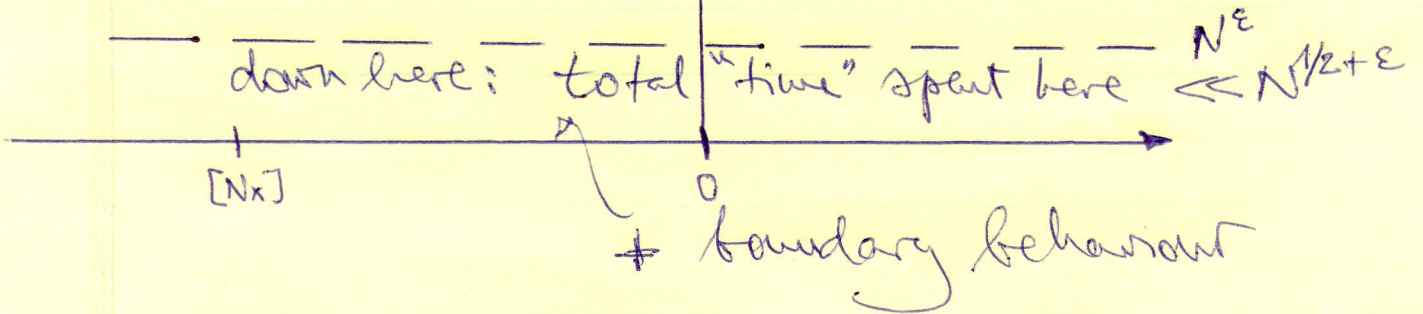 N^ε
down here: total "time" spent here << N^{1/2+ε}
[Nx] 0
+ boundary behaviour